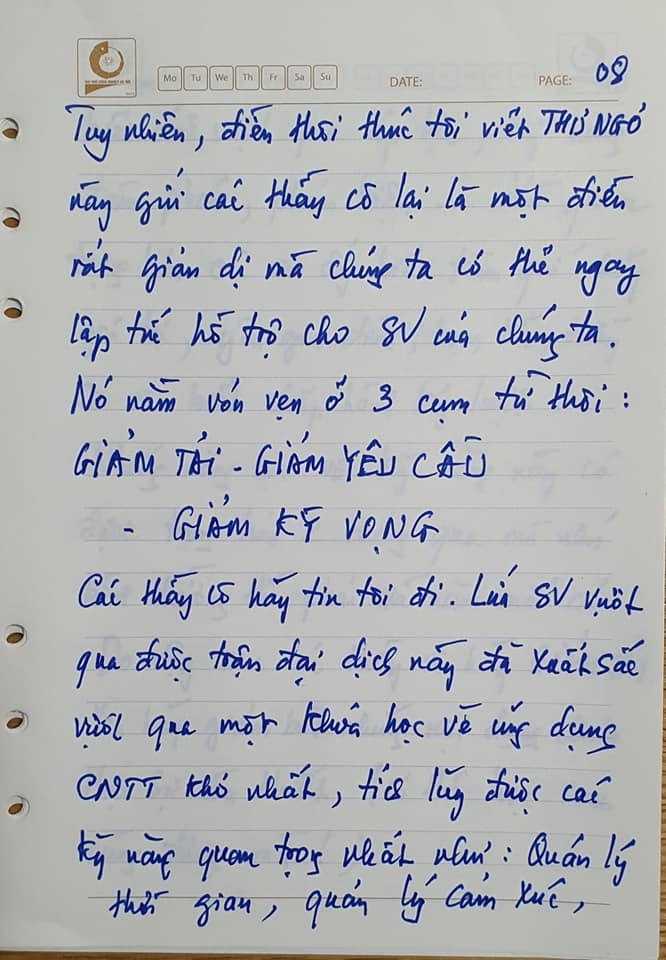 Mo Tu We Th Fr Sa Su DATE: PAGE: 08
Tuy nhiên, điền thôi thúc tôi viết THƯ NGỎ
này gửi các thầy cô lại là một điền
rất giản dị mà chúng ta có thể ngay
lập tức hỗ trợ cho SV của chúng ta.
Nó nằm vỏn vẹn ở 3 cụm từ thôi:
GIẢM TẢI - GIẢM YÊU CẦU
- GIẢM KỲ VỌNG
Các thầy cô hãy tin tôi đi. Lứa SV vượt
qua được trận đại dịch này đã xuất sắc
vượt qua một khoá học về ứng dụng
CNTT khó nhất, tích lũy được các
kỹ năng quan trọng nhất như: Quản lý
thời gian, quản lý cảm xúc,